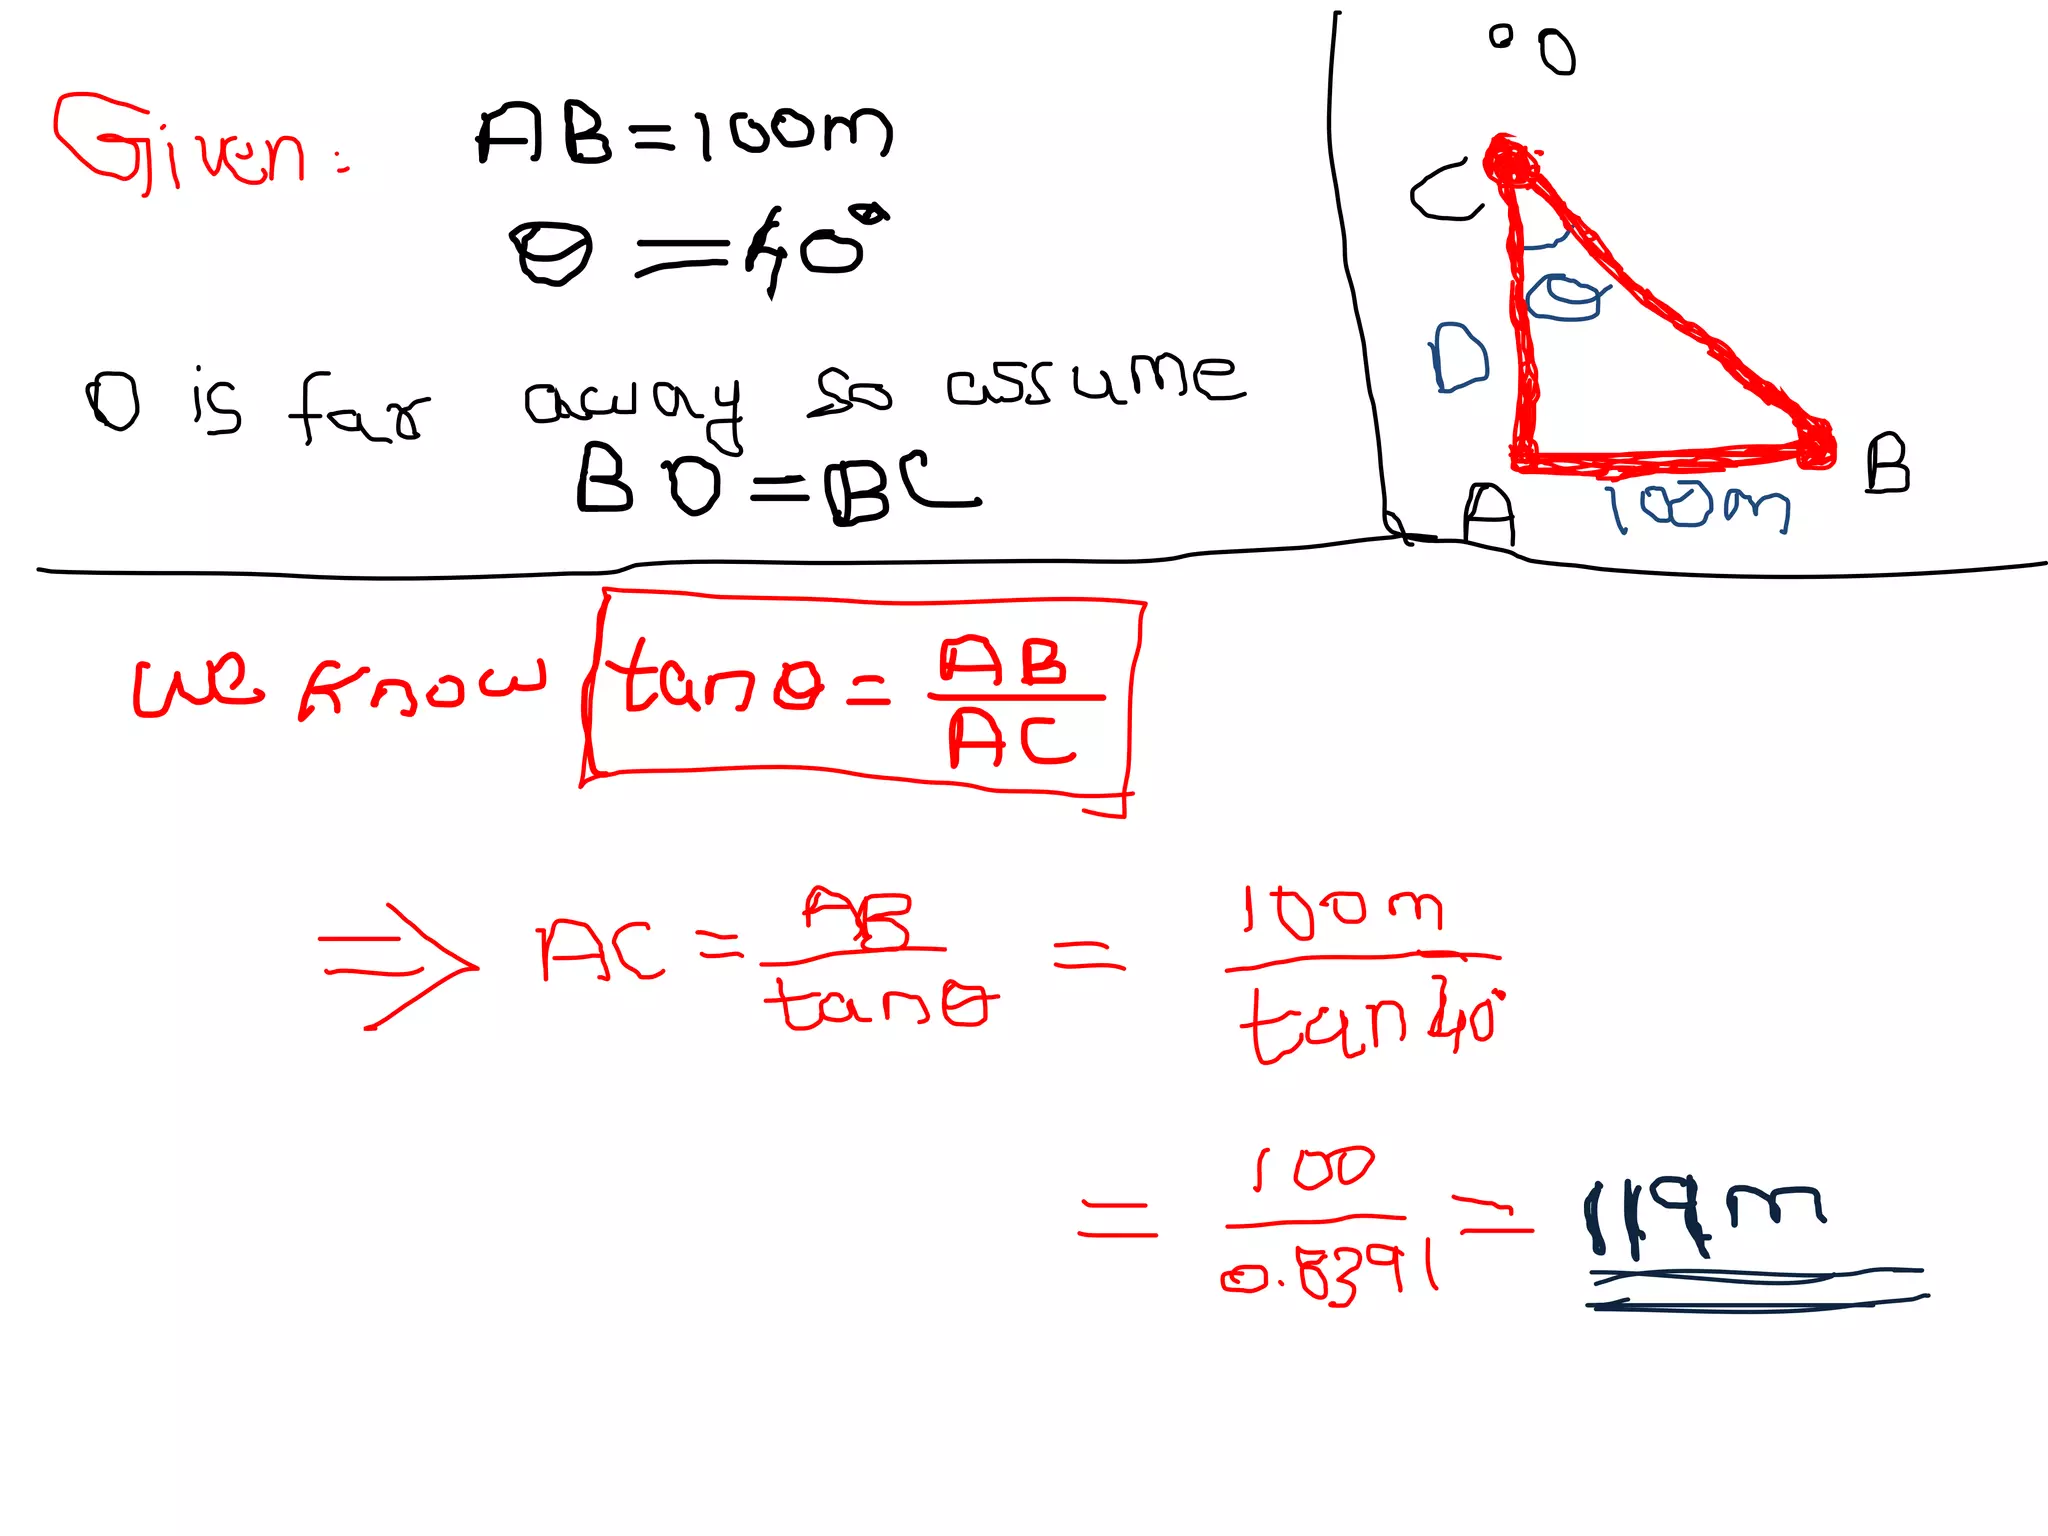 Given: AB = 100m
θ = 40°
O is far away so assume
BO = BC
O
C
θ
D
A
B
100m
we know tanθ = AB/AC
⇒ AC = AB/tanθ = 100m/tan40°
= 100/0.8391 = 119m